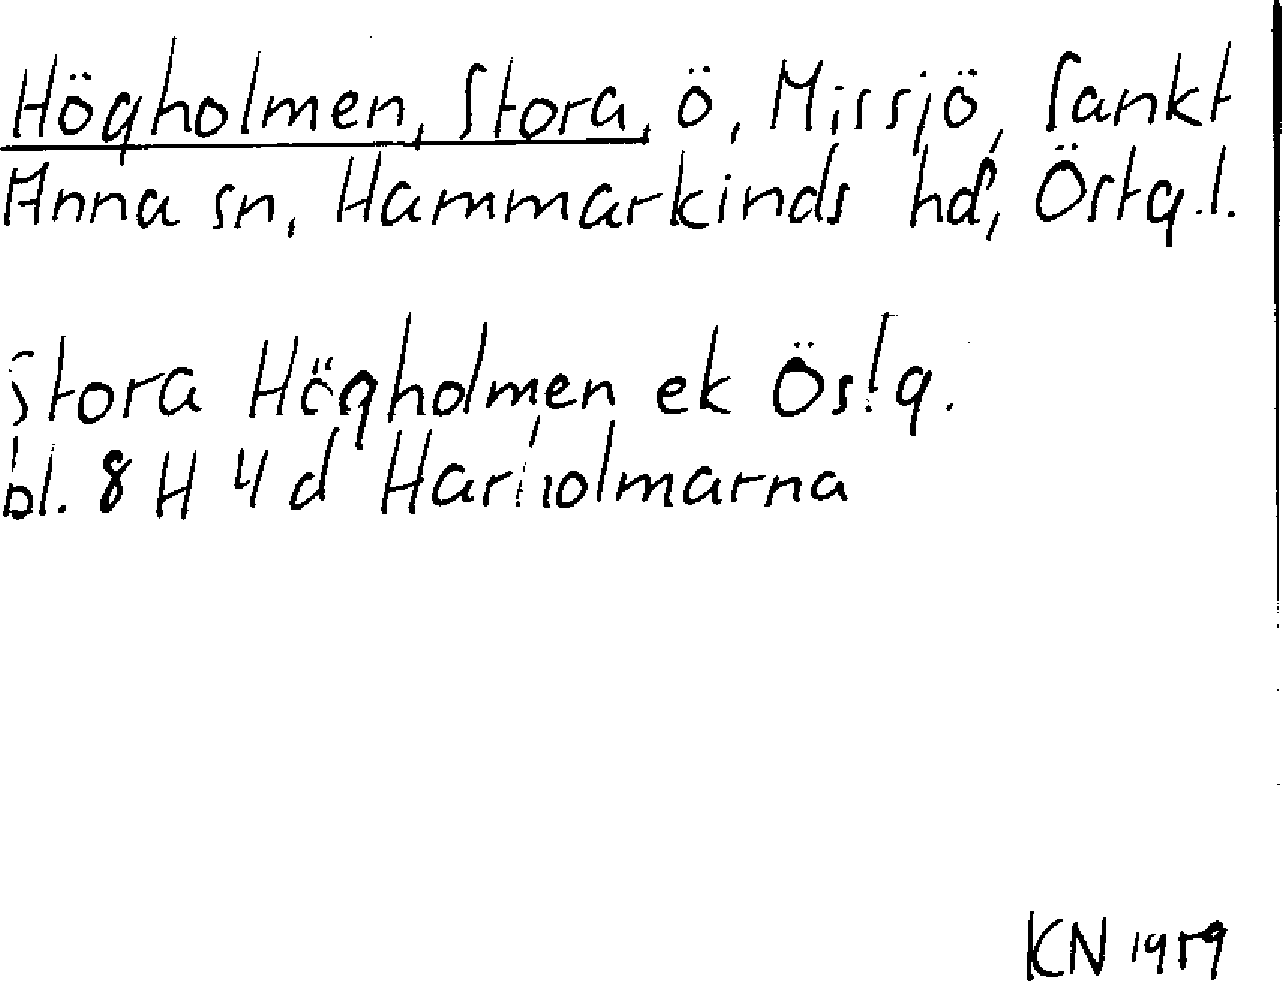 Högholmen, Stora, ö, Missjö, Sankt
Anna sn, Hammarkinds hd, Östg.l.
Stora Högholmen ek Östg.
bl. 8 H 4 d Harholmarna
KN 1959